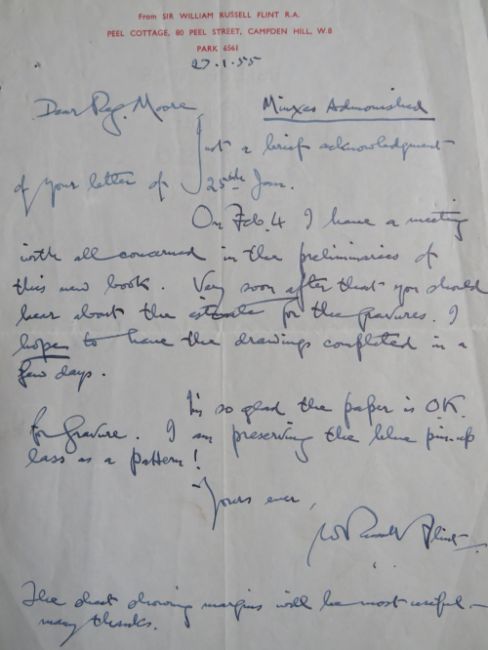 From SIR WILLIAM RUSSELL FLINT R.A.
PEEL COTTAGE, 80 PEEL STREET, CAMPDEN HILL, W.8
PARK 6561
27.1.55
Dear Reg. Moore,
Minxes Admonished
Just a brief acknowledgment
of your letter of 25th Jan.
On Feb. 4 I have a meeting
with all concerned in the preliminaries of
this new book. Very soon after that you should
hear about the estimate for the gravures. I
hope to have the drawings completed in a
few days.
I'm so glad the paper is OK.
for gravure. I am preserving the blue pin-up
lass as a pattern!
Yours ever,
W Russell Flint
The sheet showing margins will be most useful —
many thanks.